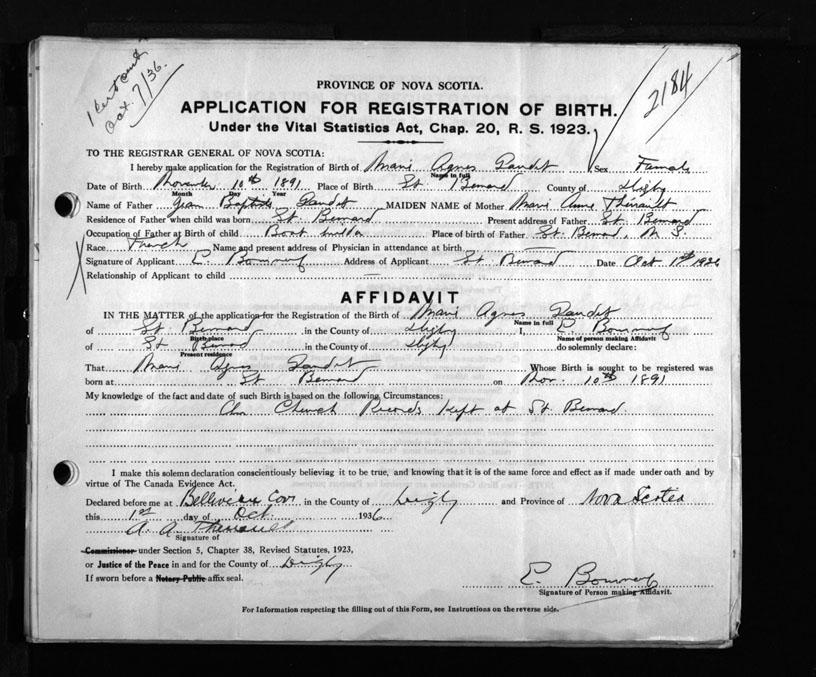 1 Cert
Oct. 7/36.
2184
PROVINCE OF NOVA SCOTIA.
APPLICATION FOR REGISTRATION OF BIRTH.
Under the Vital Statistics Act, Chap. 20, R. S. 1923.
TO THE REGISTRAR GENERAL OF NOVA SCOTIA:
I hereby make application for the Registration of Birth of Marie Agnes Gaudet Sex Female
Name in full
Date of Birth November 10th 1891 Place of Birth St Bernard County of Digby
Month Day Year
Name of Father Jean Baptiste Gaudet MAIDEN NAME of Mother Marie Anne Thériault
Residence of Father when child was born St Bernard Present address of Father St Bernard
Occupation of Father at Birth of child Boat builder Place of birth of Father St. Bernard, N. S.
Race French Name and present address of Physician in attendance at birth —
Signature of Applicant E. Address of Applicant St Bernard Date Oct 1st 1936
Relationship of Applicant to child —
AFFIDAVIT
IN THE MATTER of the application for the Registration of the Birth of Marie Agnes Gaudet
Name in full
of St. Bernard in the County of Digby I, E.
Birth place Name of person making Affidavit
of St Bernard in the County of Digby do solemnly declare:
Present residence
That Marie Agnes Gaudet Whose Birth is sought to be registered was
born at St Bernard on Nov. 10th 1891
My knowledge of the fact and date of such Birth is based on the following Circumstances:
Church Records kept at St. Bernard.
I make this solemn declaration conscientiously believing it to be true, and knowing that it is of the same force and effect as if made under oath and by
virtue of The Canada Evidence Act.
Declared before me at Belliveau Cove in the County of Digby and Province of Nova Scotia
this 1st day of Oct. 1936
A. A. Theriault
Signature of
Commissioner under Section 5, Chapter 38, Revised Statutes, 1923,
or Justice of the Peace in and for the County of Digby
If sworn before a Notary Public affix seal.
E.
Signature of Person making Affidavit.
For Information respecting the filling out of this Form, see Instructions on the reverse side.